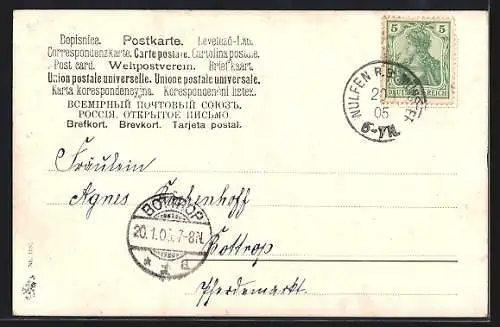 Dopisnice. Postkarte. Levelező-Lap.
Correspondenzkarte. Carte postale. Cartolina postale.
Post card. Weltpostverein. Briefkaart.
Union postale universelle. Unione postale universale.
Karta korespondencyjna. Korespondenčni listek.
ВСЕМІРНЫЙ ПОЧТОВЫЙ СОЮЗЪ.
РОССІЯ. ОТКРЫТОЕ ПИСЬМО.
Brefkort. Brevkort. Tarjeta postal.
5 5
DEUTSCHES REICH
05
5-7N.
Fräulein
Agnes Kirchenhoff
BOTTROP
20.1.05. 7-8N
* * a
Bottrop
Pferdemarkt.